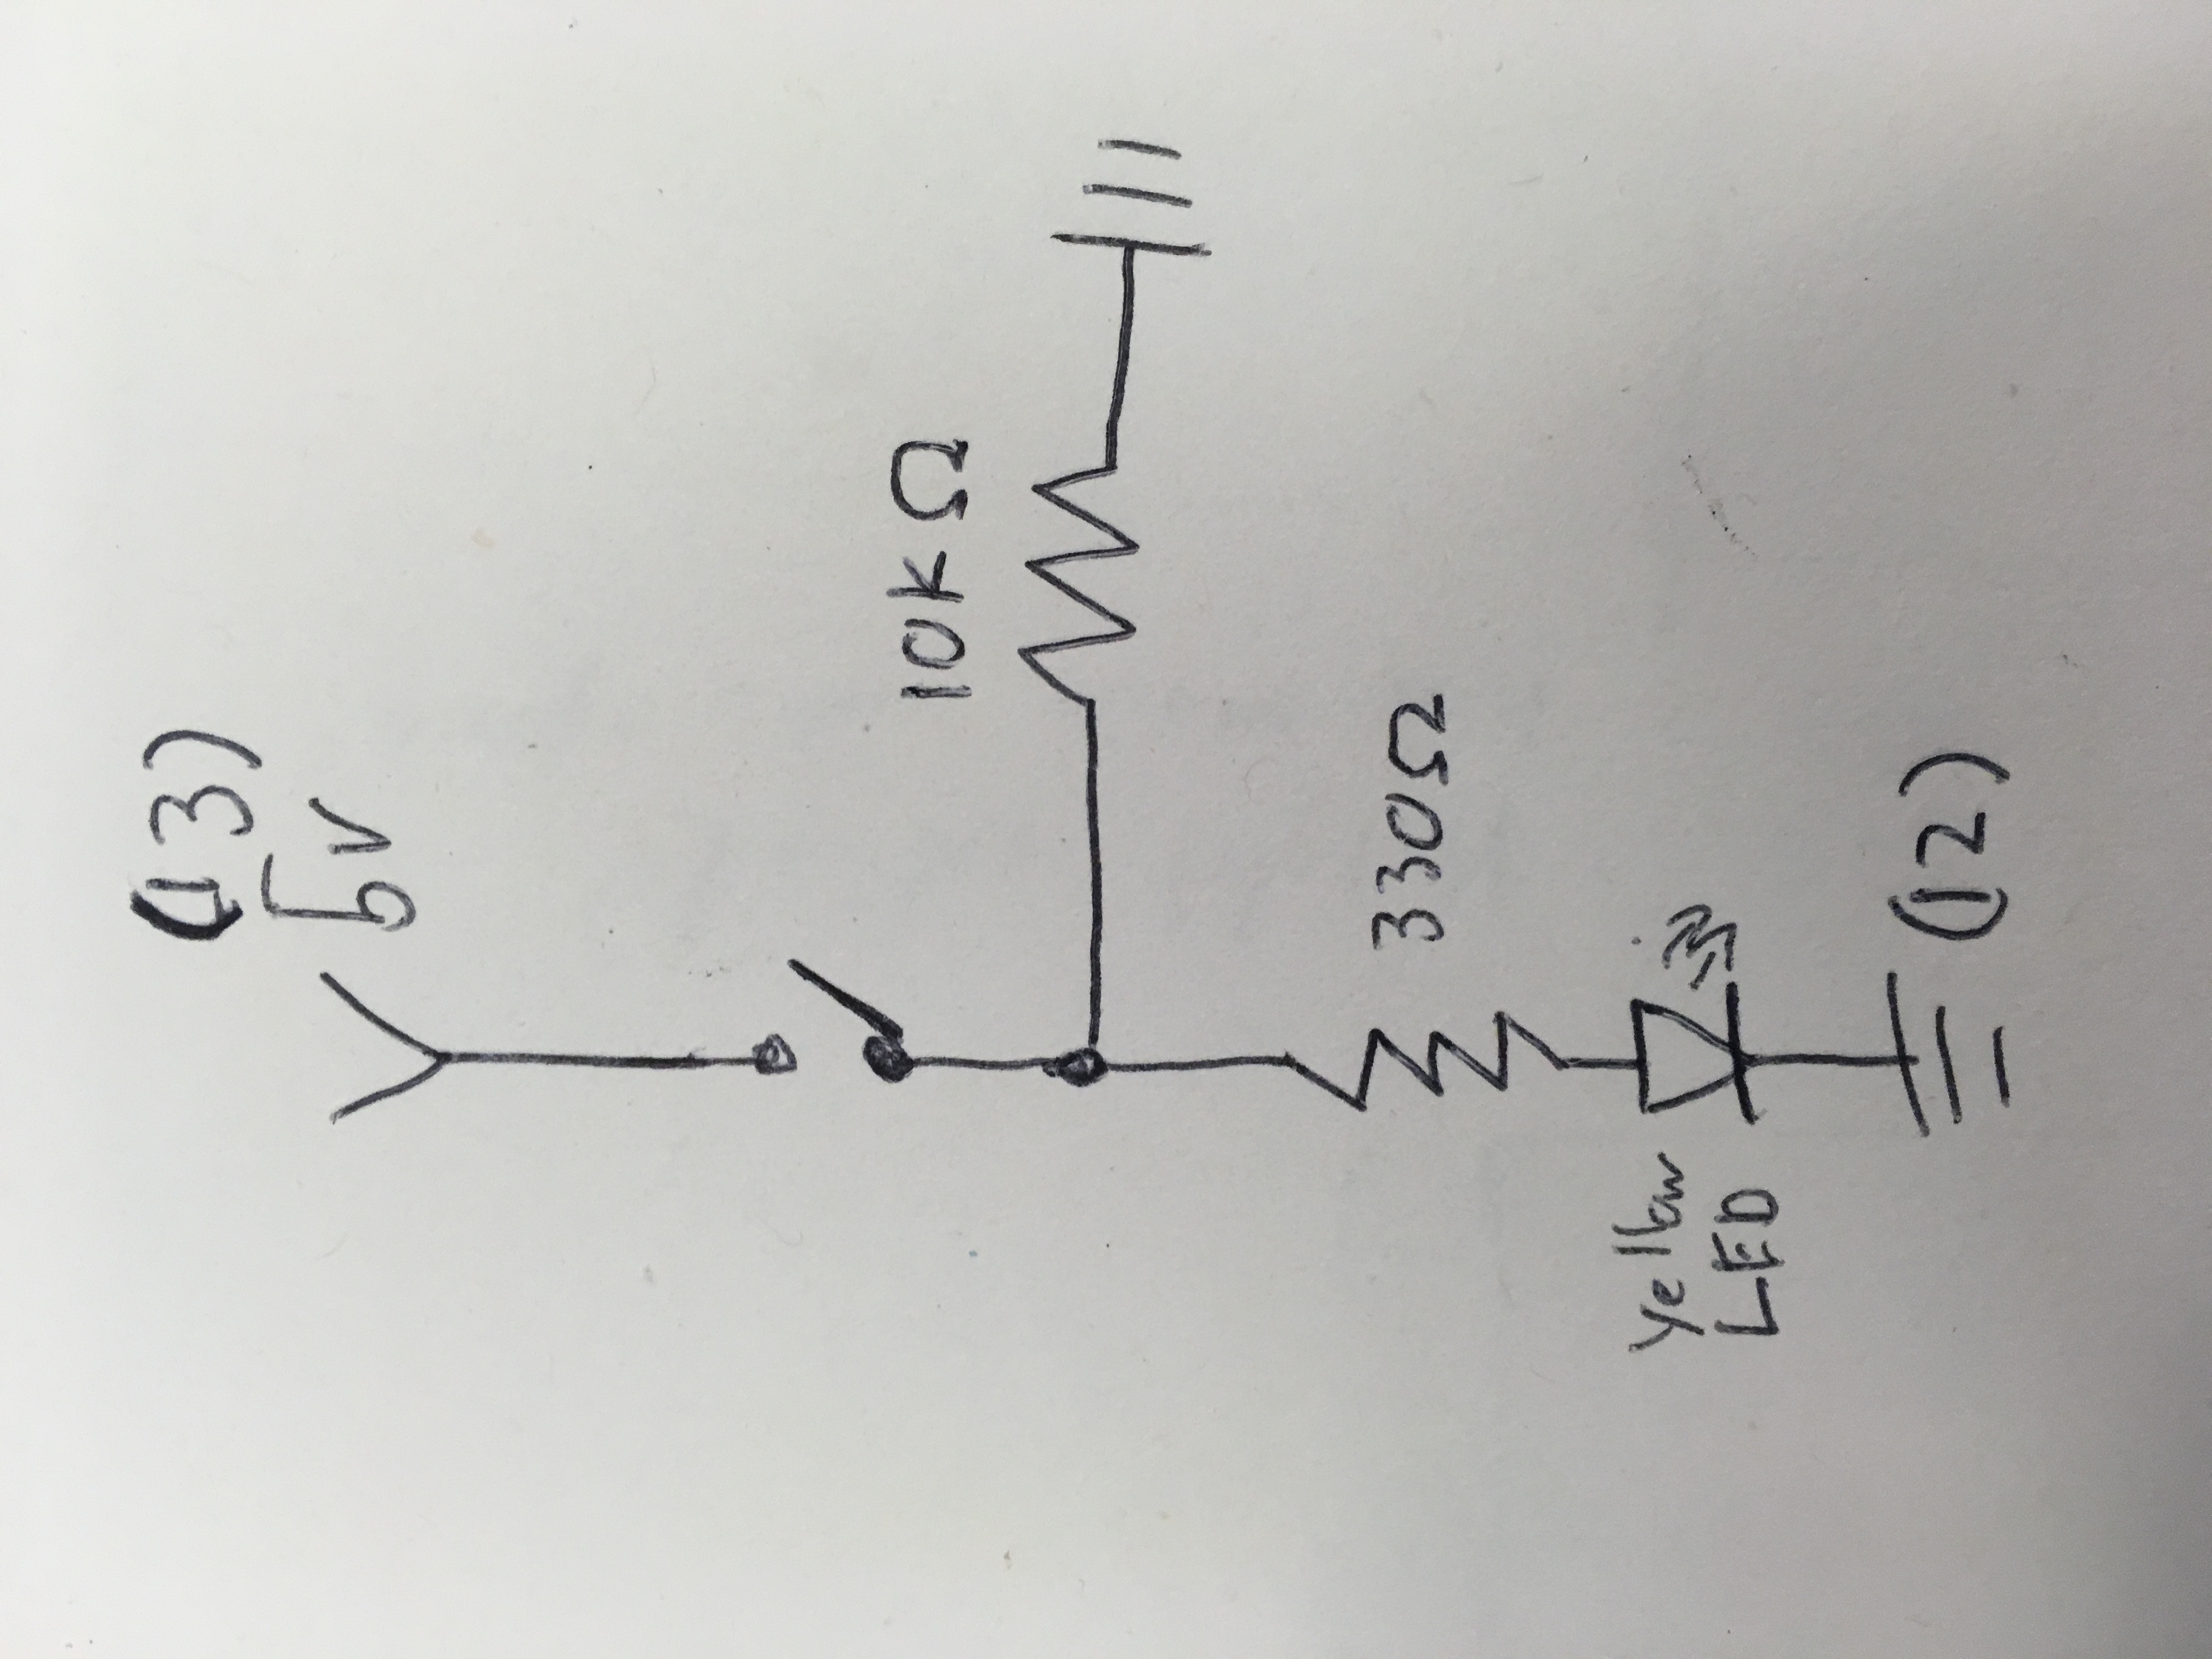 (13)
5v
10kΩ
330Ω
Yellow
LED
(12)